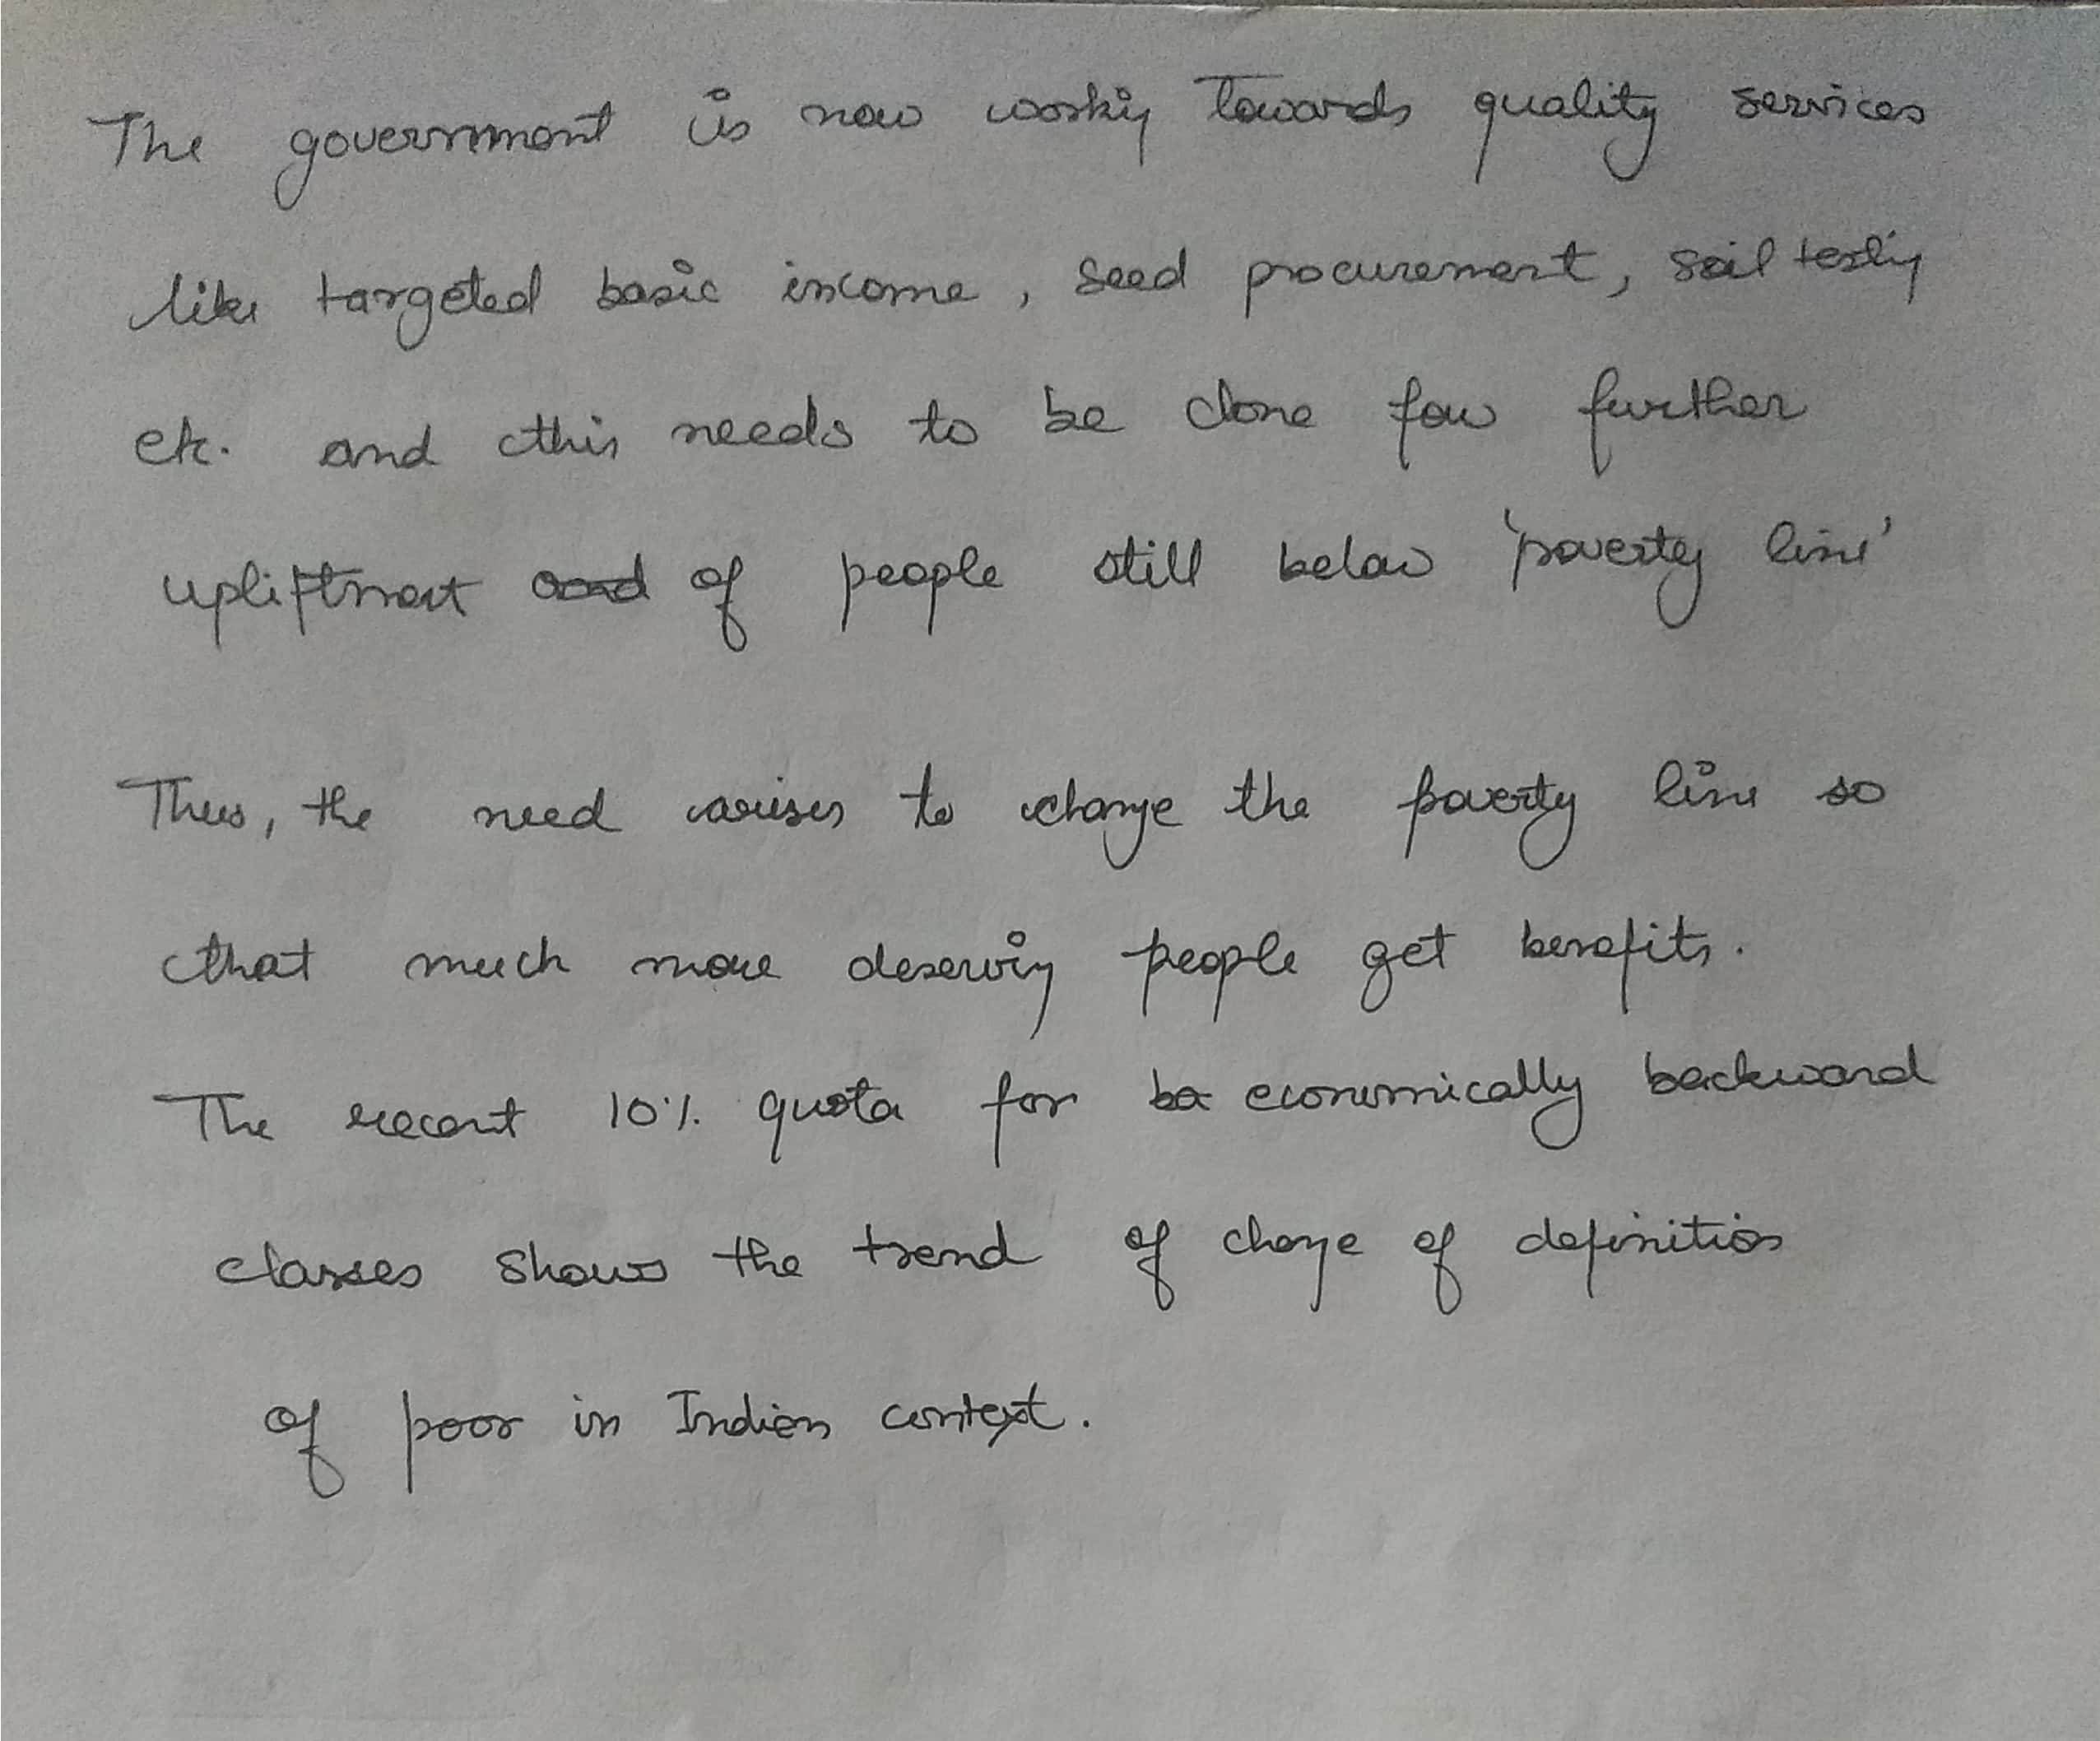 The government is now working towards quality services
like targeted basic income, seed procurement, soil testing
etc. and this needs to be done for further
upliftment of people still below 'poverty line'
Thus, the need arises to change the poverty line so
that much more deserving people get benefits.
The recent 10% quota for economically backward
classes shows the trend of change of definition
of poor in Indian context.